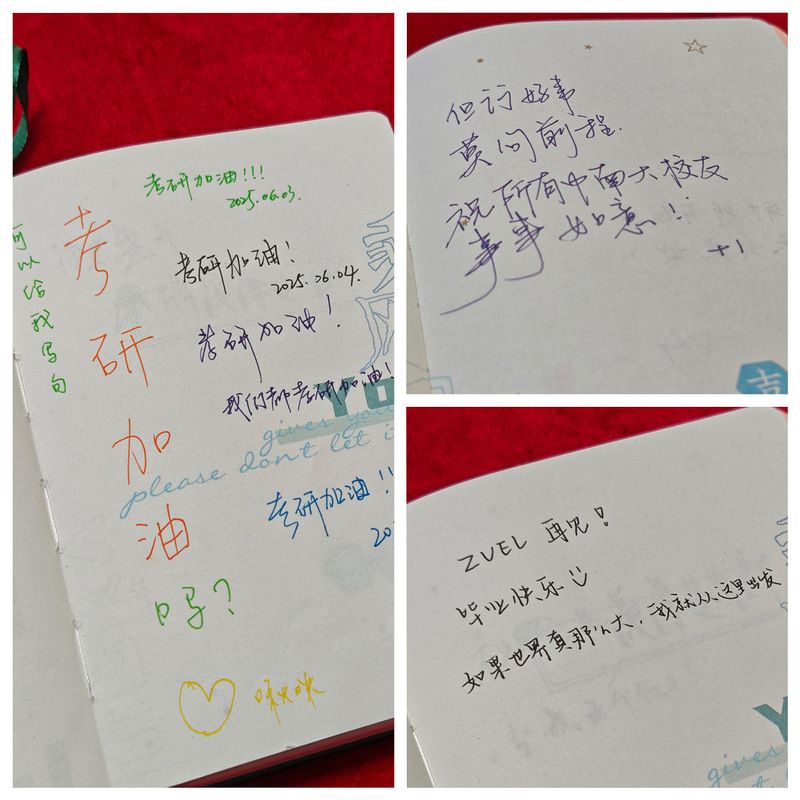 考研加油!!!
2025.06.03.
可以给我写句
考研加油
吗?
考研加油!
2025.06.04.
考研加油!
我们都考研加油!
YO
gives you
please dont let i
考研加油!!
20
咪咪
但行好事
莫问前程.
祝所有中南大校友
事事如意!
+1
吉
ZUEL 再见!
毕业快乐
如果世界真那么大,我就从这里出发
Y
gives